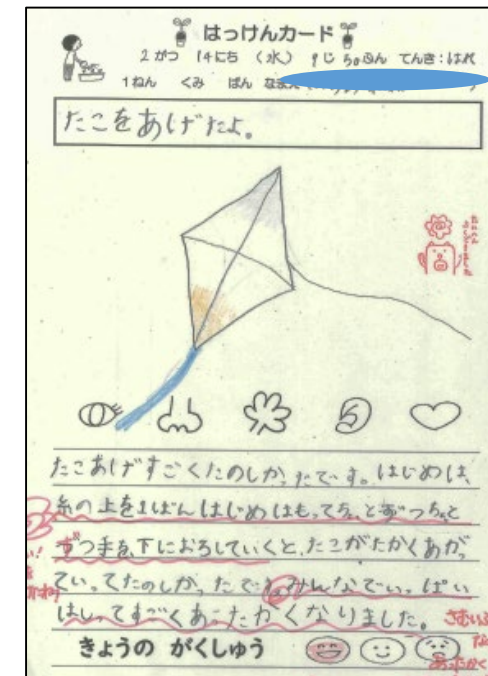 はっけんカード
2がつ 14にち (水) 9じ 50ぷん てんき:はれ
1ねん くみ ばん なまえ
たこをあげたよ。
たこあげすごくたのしかったです。はじめは、
糸の上を1ばんはじめはもってちょとずつちょと
ずつ手を下におろしていくと、たこがたかくあがっ
ていってたのしかったです。みんなでいっぱい
はしってすごくあったかくなりました。
きょうの がくしゅう